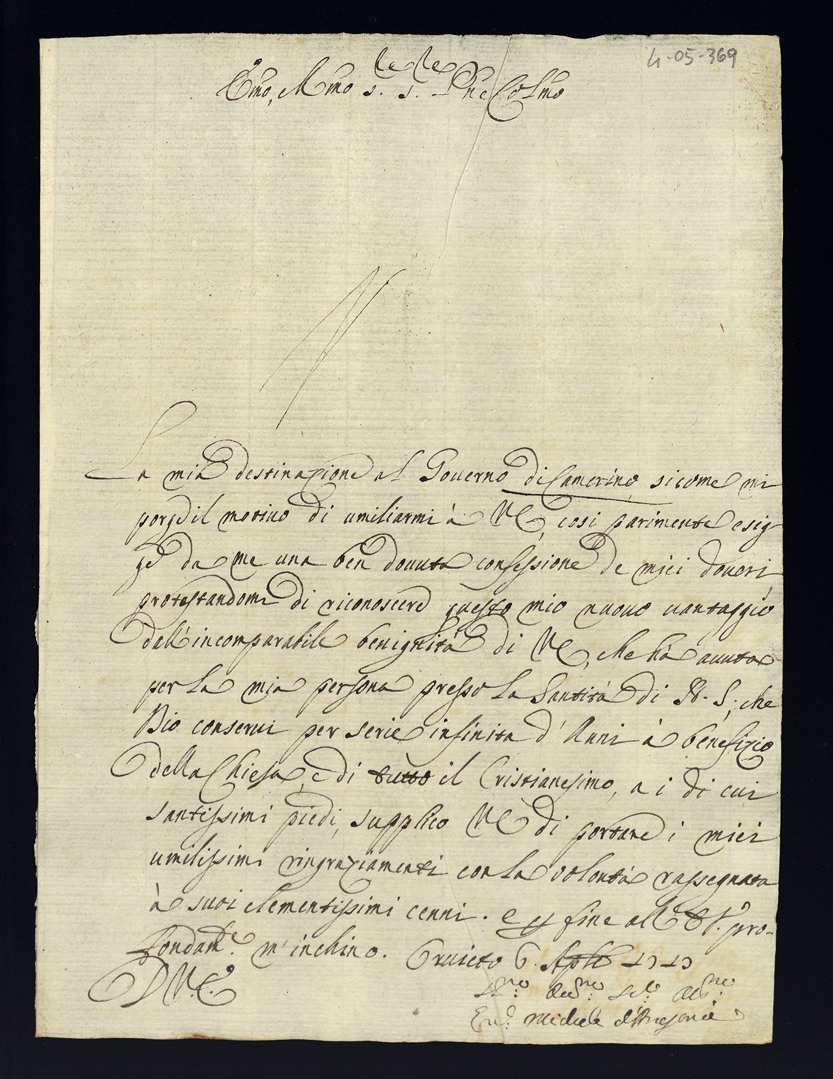 4-05-369
Emo, e Rmo s. s. Pne Colmo
La mia destinazione al Governo di Camerino, sicome mi
porge il motivo di umiliarmi à VE, cosi parimente esig-
ge da me una ben dovuta confessione de miei doveri
protestandomi di riconoscere questo mio nuovo vantaggio
dall'incomparabile benignità di VE, che hà avuta
per la mia persona presso la Santità di N. S; che
Dio conservi per serie infinita d'Anni à benefizio
della Chiesa, e di tutto il Cristianesimo, a i di cui
santissimi piedi, supplico VE di portare i miei
umilissimi ringraziamenti con la volontà rassegnata
à suoi clementissimi cenni. e fine all' pro-
fondam.e m'inchino. Orvieto 6. Aple
D V. E.
Michele